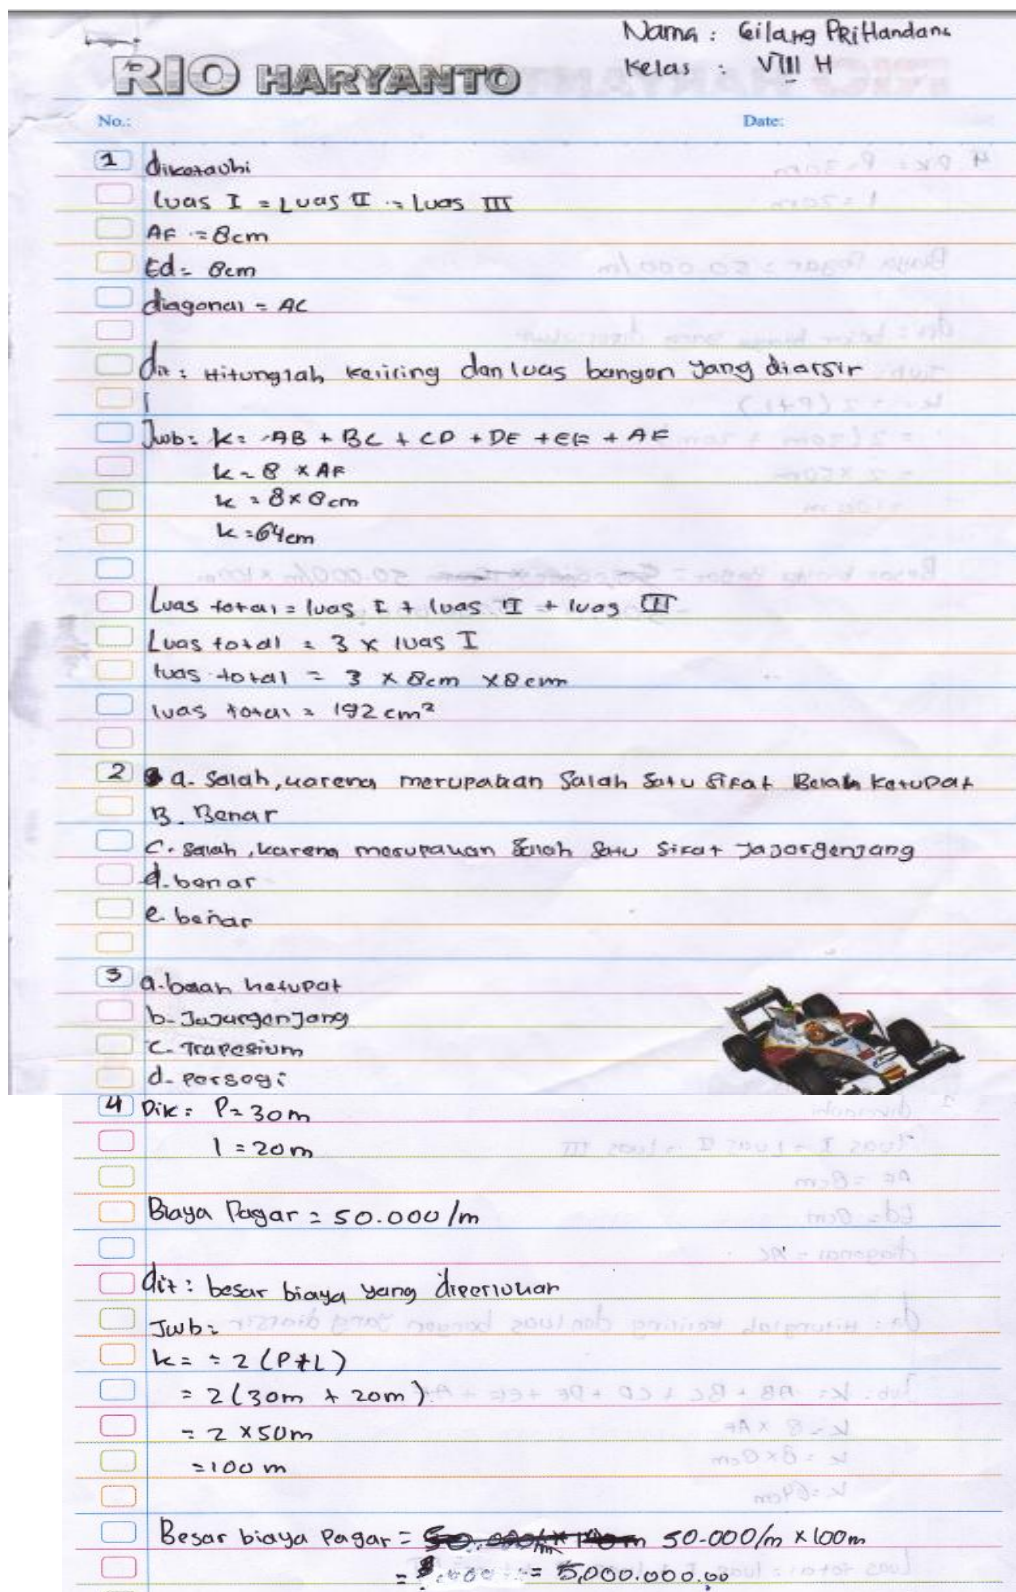 Nama : Gilang PRiHandana
Kelas : VIII H
RIO HARYANTO
No.: Date:
1 diketauhi
luas I = Luas II = Luas III
AF = 8cm
Ed = 8cm
diagonal = AC
dit : Hitunglah keliling dan luas bangon yang diarsir
Jwb: k = AB + BC + CD + DE + EF + AF
k = 8 x AF
k = 8 x 8cm
k = 64cm
Luas total = luas I + luas II + luas III
Luas total = 3 x luas I
luas total = 3 x 8cm x 8cm
luas total = 192 cm²
2 a. Salah, karena merupakan Salah Satu Sifat Belah Ketupat
B. Benar
C. Salah, karena merupakan Salah Satu Sifat Jajargenjang
d. benar
e. benar
3 a. belah ketupat
b. Jajargenjang
C. Trapesium
d. persegi
4 Dik : P = 30m
l = 20m
Biaya Pagar = 50.000/m
dit : besar biaya yang diperlukan
Jwb:
k = = 2 (P+L)
= 2 (30m + 20m)
= 2 x 50m
= 100 m
Besar biaya Pagar = 50.000/m x 100m
= 5,000.000.00